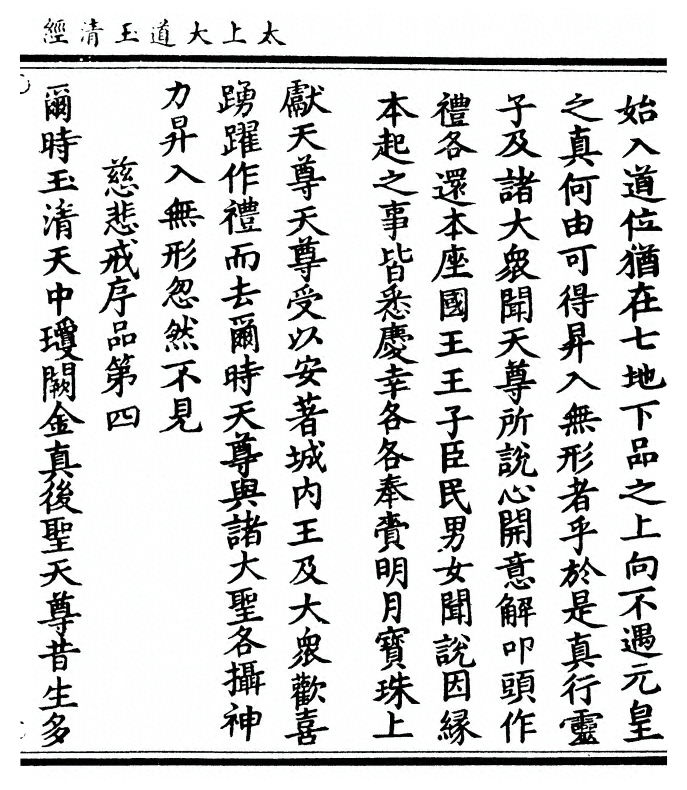 太上大道玉清經
始入道位猶在七地下品之上向不遇元皇
之真何由可得昇入無形者乎於是真行靈
子及諸大衆聞天尊所說心開意解叩頭作
禮各還本座國王王子臣民男女聞說因緣
本起之事皆悉慶幸各各奉賫明月寶珠上
獻天尊天尊受以安著城內王及大衆歡喜
踴躍作禮而去爾時天尊與諸大聖各攝神
力昇入無形忽然不見
慈悲戒序品第四
爾時玉清天中瓊闕金真後聖天尊昔生多